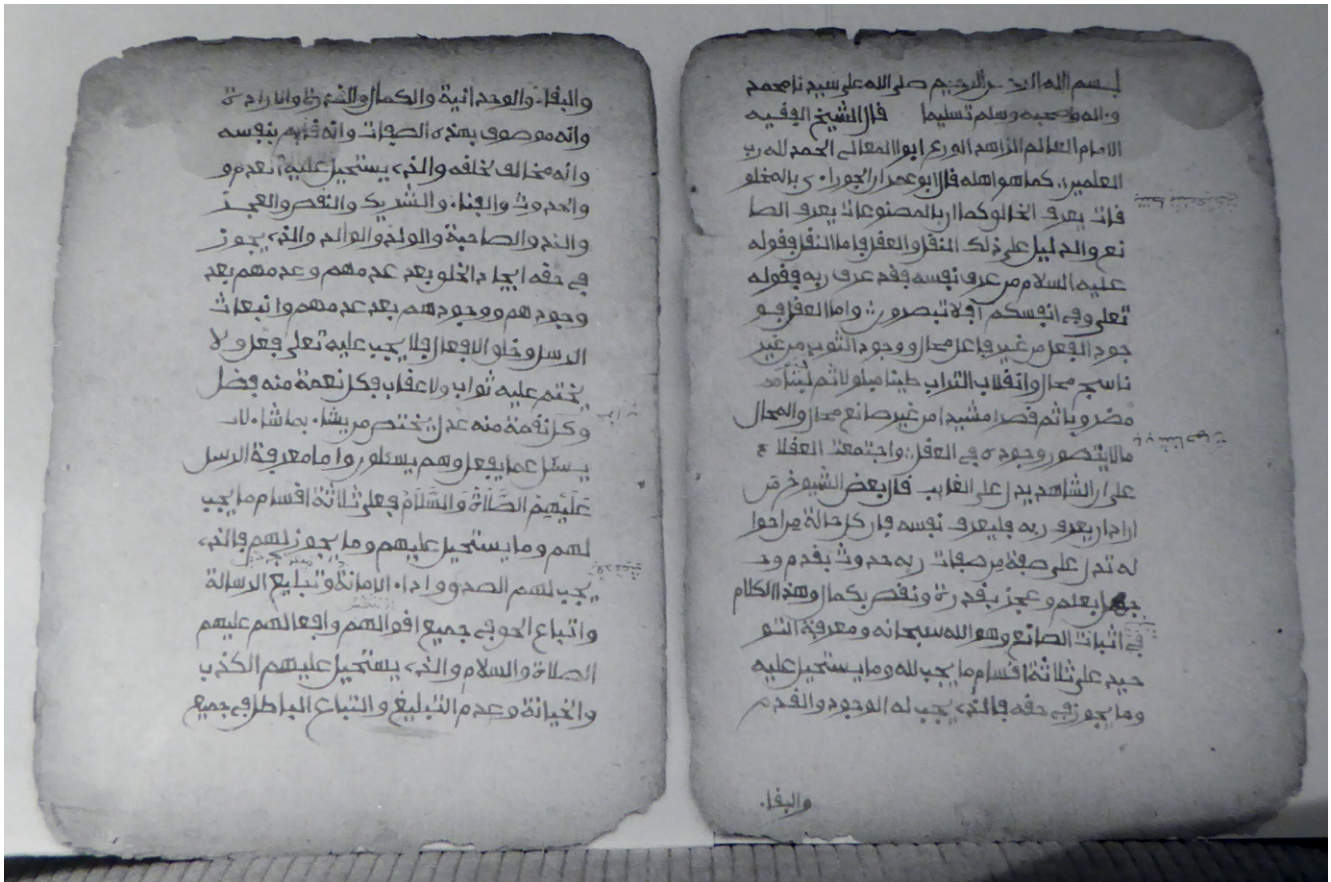 بسم الله الرحمن الرحيم صلى الله على سيدنا محمد
وءاله وصحبه وسلم تسليما قال الشيخ الفقيه
الامام العالم الزاهد الورع ابو المعالي الحمد لله رب
العلمين كما هو اهله قال ابو عمران الجوراءي بالمخلو
قات يعرف الخالق كما ان بالمصنوعات يعرف الصا
نع والدليل على ذلك النقل والعقل فاما النقل فقوله
عليه السلام من عرف نفسه فقد عرف ربه وقوله
تعلى وفي انفسكم افلا تبصرون واما العقل فو
جود الفعل من غير فاعل محال ووجود الثوب من غير
ناسج محال وانقلاب التراب طينا مبلولا ثم لبنا مد
مضروبا ثم قصرا مشيدا من غير صانع محال والمحال
ما لا يتصور وجوده في العقل واجتمعت العقلاء
على ان الشاهد يدل على الغايب قال بعض الشيوخ من
اراد ان يعرف ربه فليعرف نفسه فان كل حالة من احوا
له تدل على صفة من صفات ربه حدوث بقدم و
جهل بعلم وعجز بقدرة ونقص بكمال وهذا الكلام
في اثبات الصانع وهو الله سبحانه ومعرفة التو
حيد على ثلاثة اقسام ما يجب لله وما يستحيل عليه
وما يجوز في حقه فالذي يجب له الوجود والقدم
والبقاء
والبقاء والوحدانية والكمال والقدرة والارادة
وانه موصوف بهذه الصفات وانه قايم بنفسه
وانه مخالف لخلقه والذي يستحيل عليه العدم و
والحدوث والفناء والشريك والنقص والعجز
والند والصاحبة والولد والوالد والذي يجوز
في حقه ايجاد الخلق بعد عدمهم وعدمهم بعد
وجودهم ووجودهم بعد عدمهم وانبعاث
الرسل وخلق الافعال فلا يجب عليه تعلى فعل ولا
يحتم عليه ثواب ولا عقاب فكل نعمة منه فضل
وكل نقمة منه عدل يختص من يشاء بما شاء لا
يسئل عما يفعل وهم يسئلون واما معرفة الرسل
عَلَيْهِمُ الصَّلَاةُ وَالسَّلَامُ فعلى ثلاثة اقسام ما يجب
لهم وما يستحيل عليهم وما يجوز لهم فالذي
يجب لهم الصدق واداء الامانة وتبليغ الرسالة
واتباع الحق في جميع اقوالهم وافعالهم عليهم
الصلاة والسلام والذي يستحيل عليهم الكذب
والخيانة وعدم التبليغ والتباع الباطل في جميع